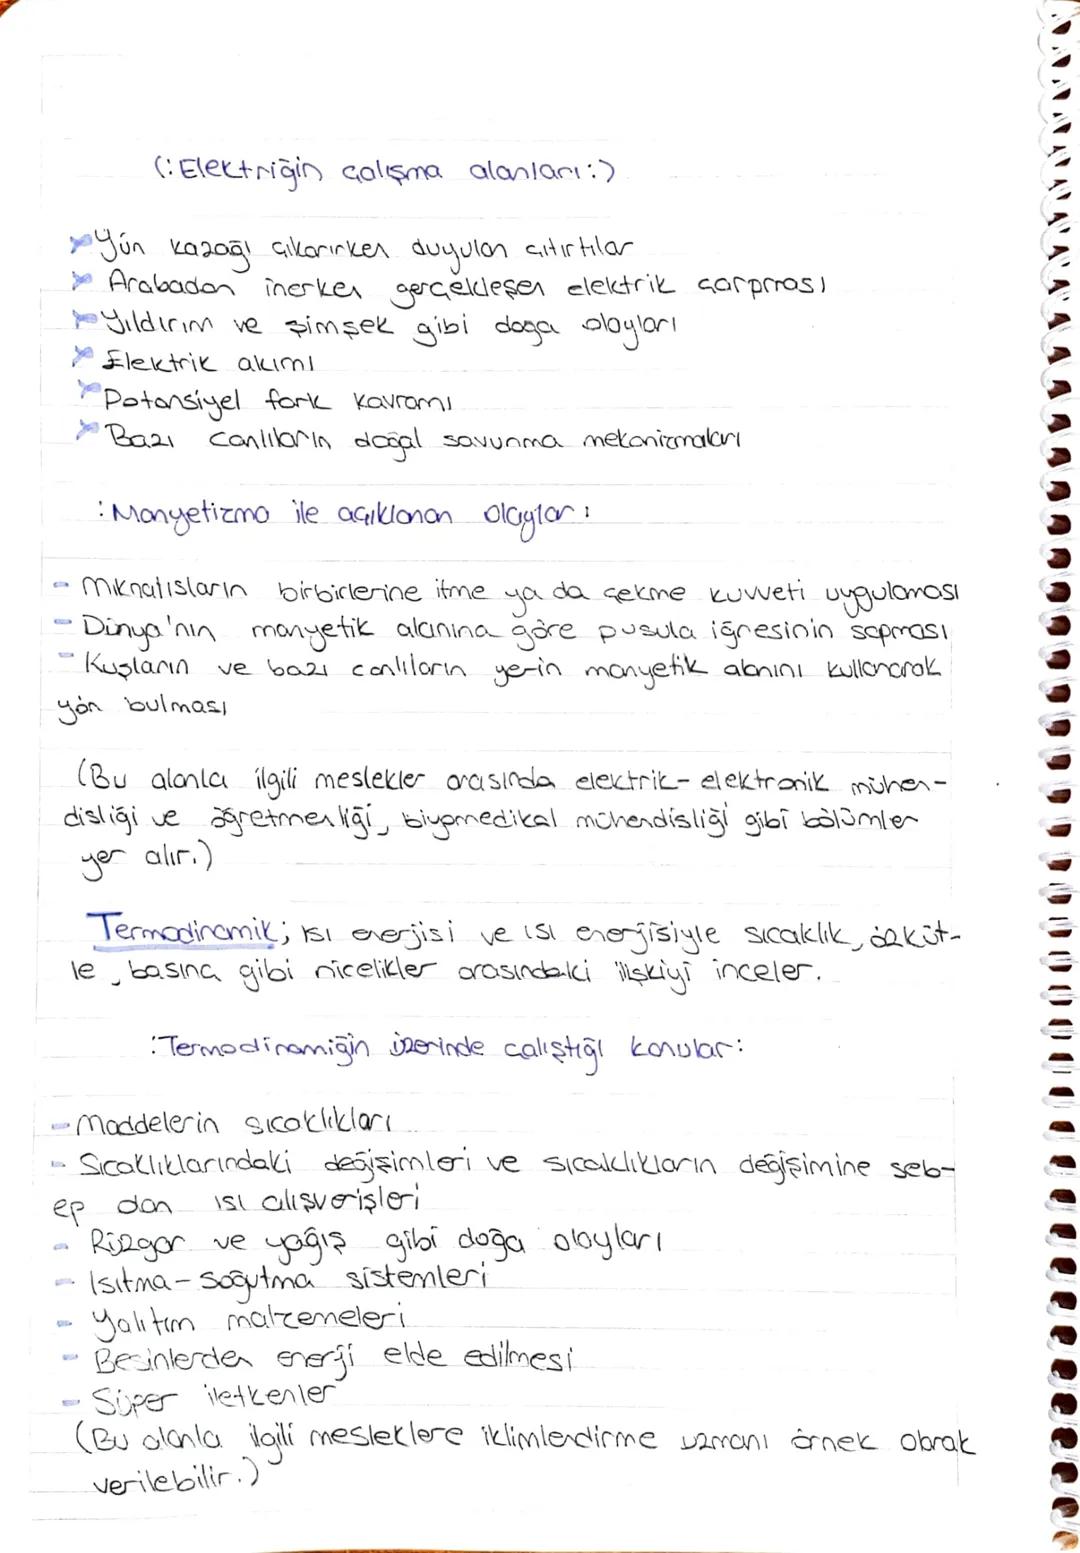 (: Elektriğin çalışma alanları :)
Yün kazağı çıkarırken duyulan çıtırtılar
Arabadan inerken gerçekleşen elektrik çarpması
Yıldırım ve şimşek gibi doğa olayları
Elektrik akımı
Potansiyel fark kavramı
Bazı canlıların doğal savunma mekanizmaları
: Manyetizma ile açıklanan olaylar :
- Mıknatısların birbirlerine itme ya da çekme kuvveti uygulaması
- Dünya'nın manyetik alanına göre pusula iğnesinin sapması
- Kuşların ve bazı canlıların yerin manyetik alanını kullanarak
yön bulması
(Bu alanla ilgili meslekler arasında elektrik-elektronik mühen-
disliği ve öğretmenliği, biyomedikal mühendisliği gibi bölümler
yer alır.)
Termodinamik; ısı enerjisi ve ısı enerjisiyle sıcaklık, özküt-
le, basınç gibi nicelikler arasındaki ilişkiyi inceler.
: Termodinamiğin üzerinde çalıştığı konular :
- Maddelerin sıcaklıkları
- Sıcaklıklarındaki değişimleri ve sıcaklıkların değişimine seb-
ep olan ısı alışverişleri
- Rüzgar ve yağış gibi doğa olayları
- Isıtma-soğutma sistemleri
- Yalıtım malzemeleri
- Besinlerden enerji elde edilmesi
- Süper iletkenler
(Bu alanla ilgili mesleklere iklimlendirme uzmanı örnek olarak
verilebilir.)